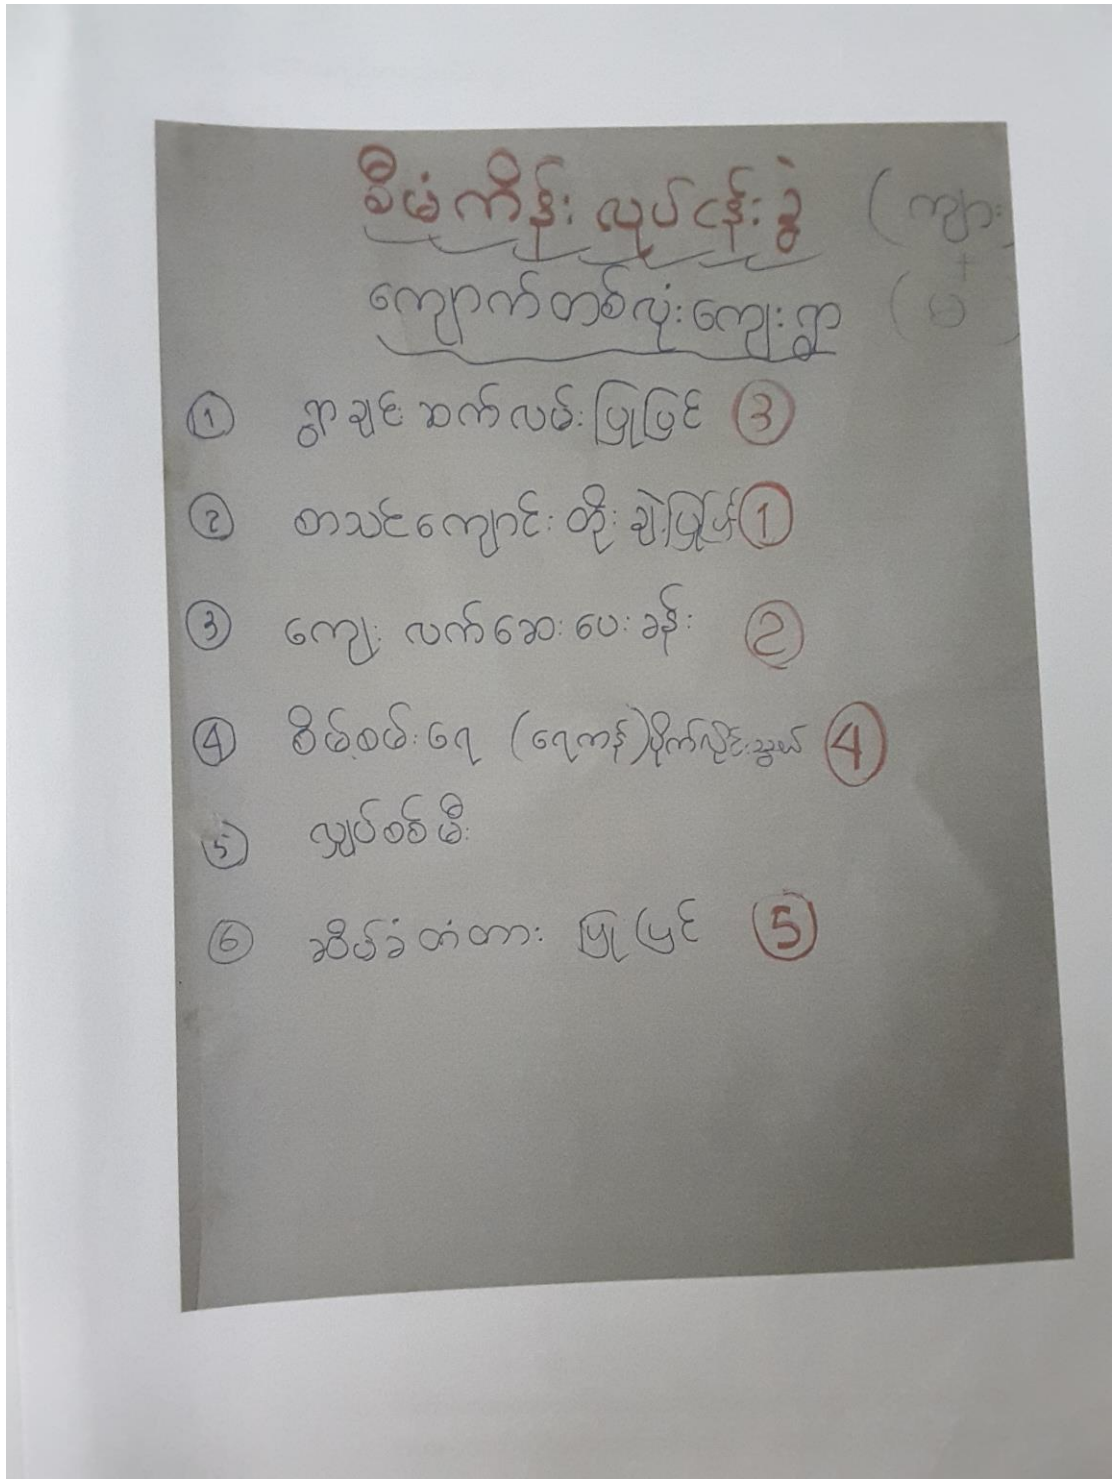 စီမံကိန်း လုပ်ငန်းခွဲ (ကျား
+
ကျောက်တစ်လုံးကျေးရွာ (မ)
① ရွာချင်းဆက်လမ်းပြုပြင် ③
② စာသင်ကျောင်း တိုးချဲ့ပြုပြင် ①
③ ကျေးလက်ဆေးပေးခန်း ②
④ စိမ့်စမ်းရေ (ရေကန်) ပိုက်လိုင်းသွယ် ④
⑤ လျှပ်စစ်မီး
⑥ ဆိပ်ခံတံတား ပြုပြင် ⑤